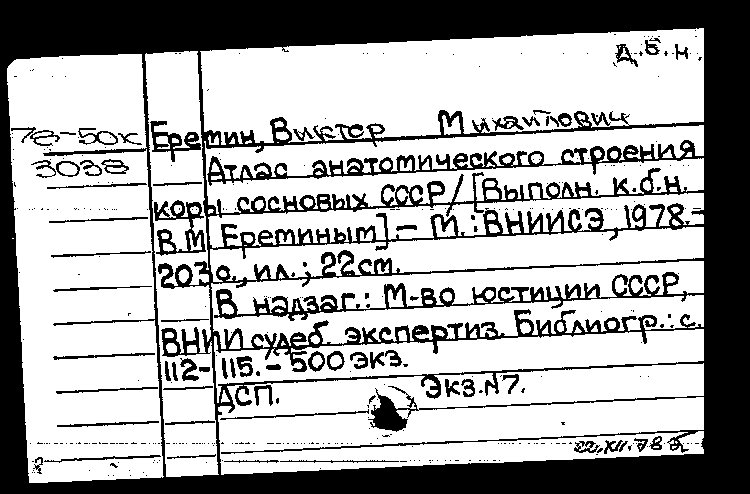 Д.Б.Н.
78-50к Еретин, Виктор Михайлович
3038 Атлас анатомического строения
коры сосновых СССР/[Выполн. к.б.н.
В.М. Еретиным].- М.: ВНИИСЭ, 1978.-
203 с., ил.; 22 см.
В надзаг.: М-во юстиции СССР,
ВНИИ судеб. экспертиз. Библиогр.: с.
112-115.- 500 экз.
ДСП. Экз. №7.
22.XII.78